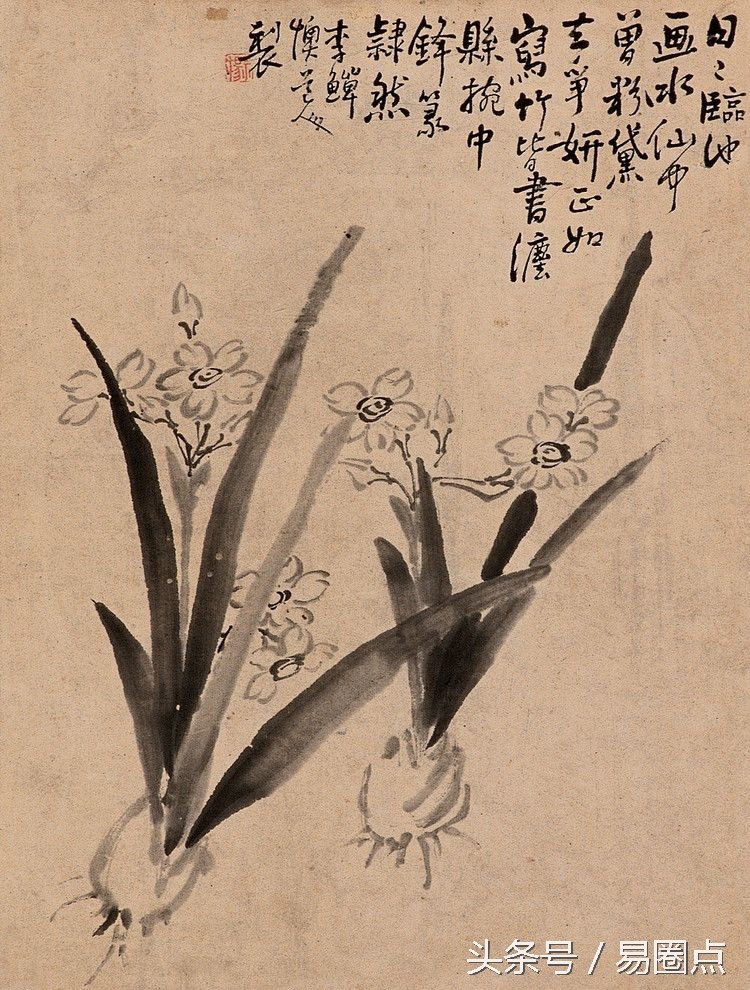 日〻臨池
画水仙何
曾粉黛
去爭妍正如
寫竹皆書灋
縣捥中
鋒篆
隷然
李鱓
懊道人
製
头条号 / 易圈点